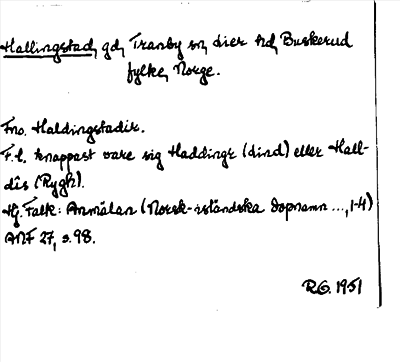 Hallingstad, gd, Tranby sn, Lier hd, Buskerud
fylke, Norge.
Fno. Haldingstadir.
F.l. knappast vare sig Haddingr (Lind) eller Hall-
dís (Rygh).
Hj. Falk: Anmälan (Norsk-isländska dopnamn ..., 1-4)
ANF 27, s. 98.
R.G. 1951